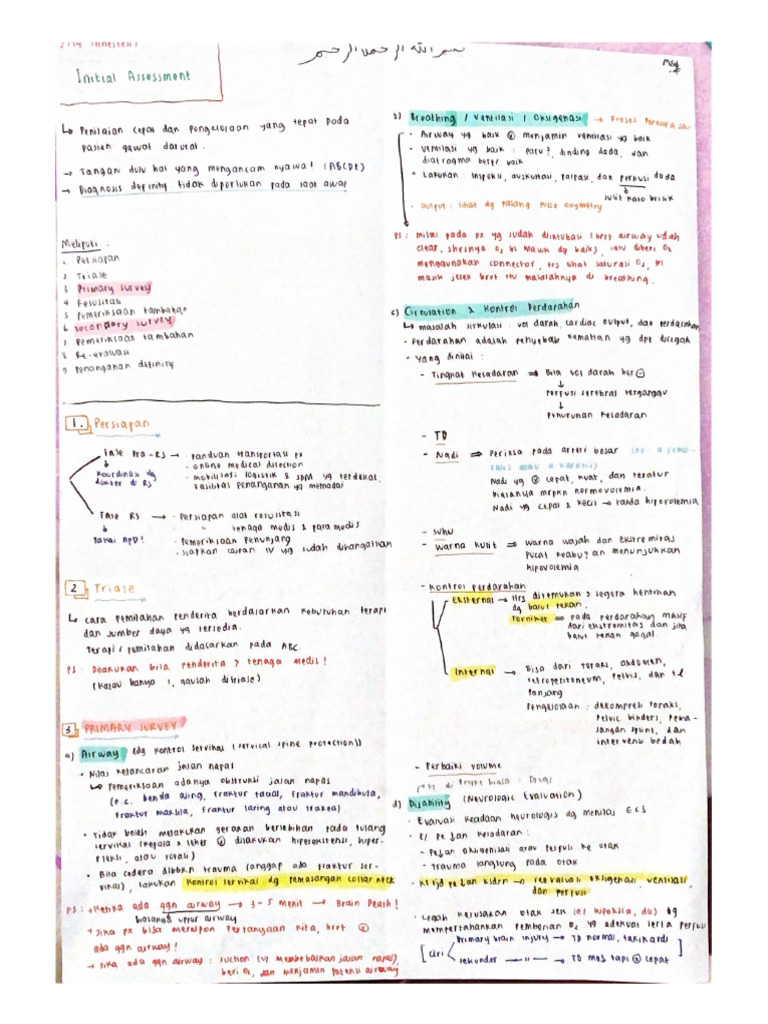 Initial Assessment
بسم الله الرحمن الرحيم
↳ Penilaian cepat dan pengelolaan yang tepat pada
pasien gawat darurat.
→ Tangani dulu hal yang mengancam nyawa! (ABCDE)
→ Diagnosis definitif tidak diperlukan pada saat awal
Meliputi :
1 Persiapan
2 Triase
3 Primary survey
4 Resusitasi
5 Pemeriksaan tambahan
6 Secondary survey
7 Pemeriksaan tambahan
8 Re-evaluasi
9 Penanganan definitif
1. Persiapan
Fase Pra-RS → · panduan transportasi px
↓ · online medical direction
Koordinasi dg · mobilisasi logistik & SDM yg terdekat,
dokter di RS fasilitas penanganan yg memadai
Fase RS → · Persiapan alat resusitasi
↓ · " tenaga medis & paramedis
Pakai APD! · Pemeriksaan Penunjang
· siapkan cairan IV yg sudah dihangatkan
2 Triase
↳ cara pemilahan penderita berdasarkan kebutuhan terapi
dan sumber daya yg tersedia.
Terapi / pemilahan didasarkan pada ABC.
PS : Dilakukan bila penderita > tenaga medis!
(Kalau hanya 1, gausah ditriase)
3 PRIMARY SURVEY
a) Airway (dg kontrol servikal (servical spine protection))
· Nilai kelancaran jalan napas
↳ Pemeriksaan adanya obstruksi jalan napas
(e.c. benda asing, fraktur facial, fraktur mandibula,
fraktur maksila, fraktur laring atau trakea)
· Tidak boleh melakukan gerakan berlebihan pada tulang
servikal (kepala & leher dilakukan hiperekstensi, hiper-
fleksi, atau rotasi)
· Bila cedera disbbkn trauma (anggap ada fraktur ser-
vikal), lakukan kontrol servikal dg pemasangan collar neck
PS : → Ketika ada ggn airway → 3-5 menit → Brain Death!
biasanya upper airway
→ Jika px bisa merespon pertanyaan kita, brrt
ada ggn airway!
→ Jika ada ggn airway : suction (u/ membebaskan jalan napas),
beri O₂, dan menjamin patensi airway
b) Breathing / Ventilasi / Oksigenasi → Proses
- Airway yg baik menjamin ventilasi yg baik
- Ventilasi yg baik : paru², dinding dada, dan
diafragma baik
- Lakukan : inspeksi, auskultasi, palpasi, dan perkusi dada
↓
sulit kalo berisik
- Output : lihat dg pulse oxymetry
PS : Misal pada px yg sudah diintubasi (brrt airway udah
clear, shrsnya O₂ bs masuk dg baik), O₂
menggunakan connector, trs lihat saturasi O₂,
masih jelek brrt itu masalahnya di breathing.
c) Circulation & Kontrol Perdarahan
↳ masalah sirkulasi : vol darah, cardiac output, dan perdarahan
- Perdarahan adalah penyebab kematian yg dpt dicegah
- Yang dinilai :
- Tingkat Kesadaran ⇒ Bila vol darah ber⊖
↓
Perfusi serebral terganggu
↓
Penurunan kesadaran
- TD
- Nadi ⇒ Periksa pada arteri besar
Nadi yg cepat, kuat, dan teratur
biasanya mrpkn normovolemia.
Nadi yg cepat & kecil → tanda hipovolemia
- Suhu
- Warna kulit ⇒ Warna wajah dan ekstremitas
pucat keabu²an menunjukkan
hipovolemia
- Kontrol perdarahan
Eksternal → Hrs ditemukan & segera hentikan
dg balut tekan.
Torniket ⇒ pada perdarahan masif
dari ekstremitas dan jika
balut tekan gagal.
Internal → Bisa dari toraks, abdomen,
retroperitoneum, pelvis, dan tl
panjang
Pengelolaan : dekompresi toraks,
pelvic binders, pema-
sangan splint, dan
intervensi bedah
- Perbaiki volume
d) Disability (Neurologic Evaluation)
- Evaluasi keadaan neurologis dg menilai GCS
- Kesadaran :
- Oksigenisasi atau perfusi ke otak
- Trauma langsung pada otak
- → reevaluasi oksigenasi, ventilasi
dan perfusi
- Cegah kerusakan otak sek (e/ hipoksia, dll) dg
mempertahankan pemberian O₂ yg adekuat serta perfusi
Ciri Primary brain injury → TD normal, takikardi
sekunder —"— → TD tapi cepat